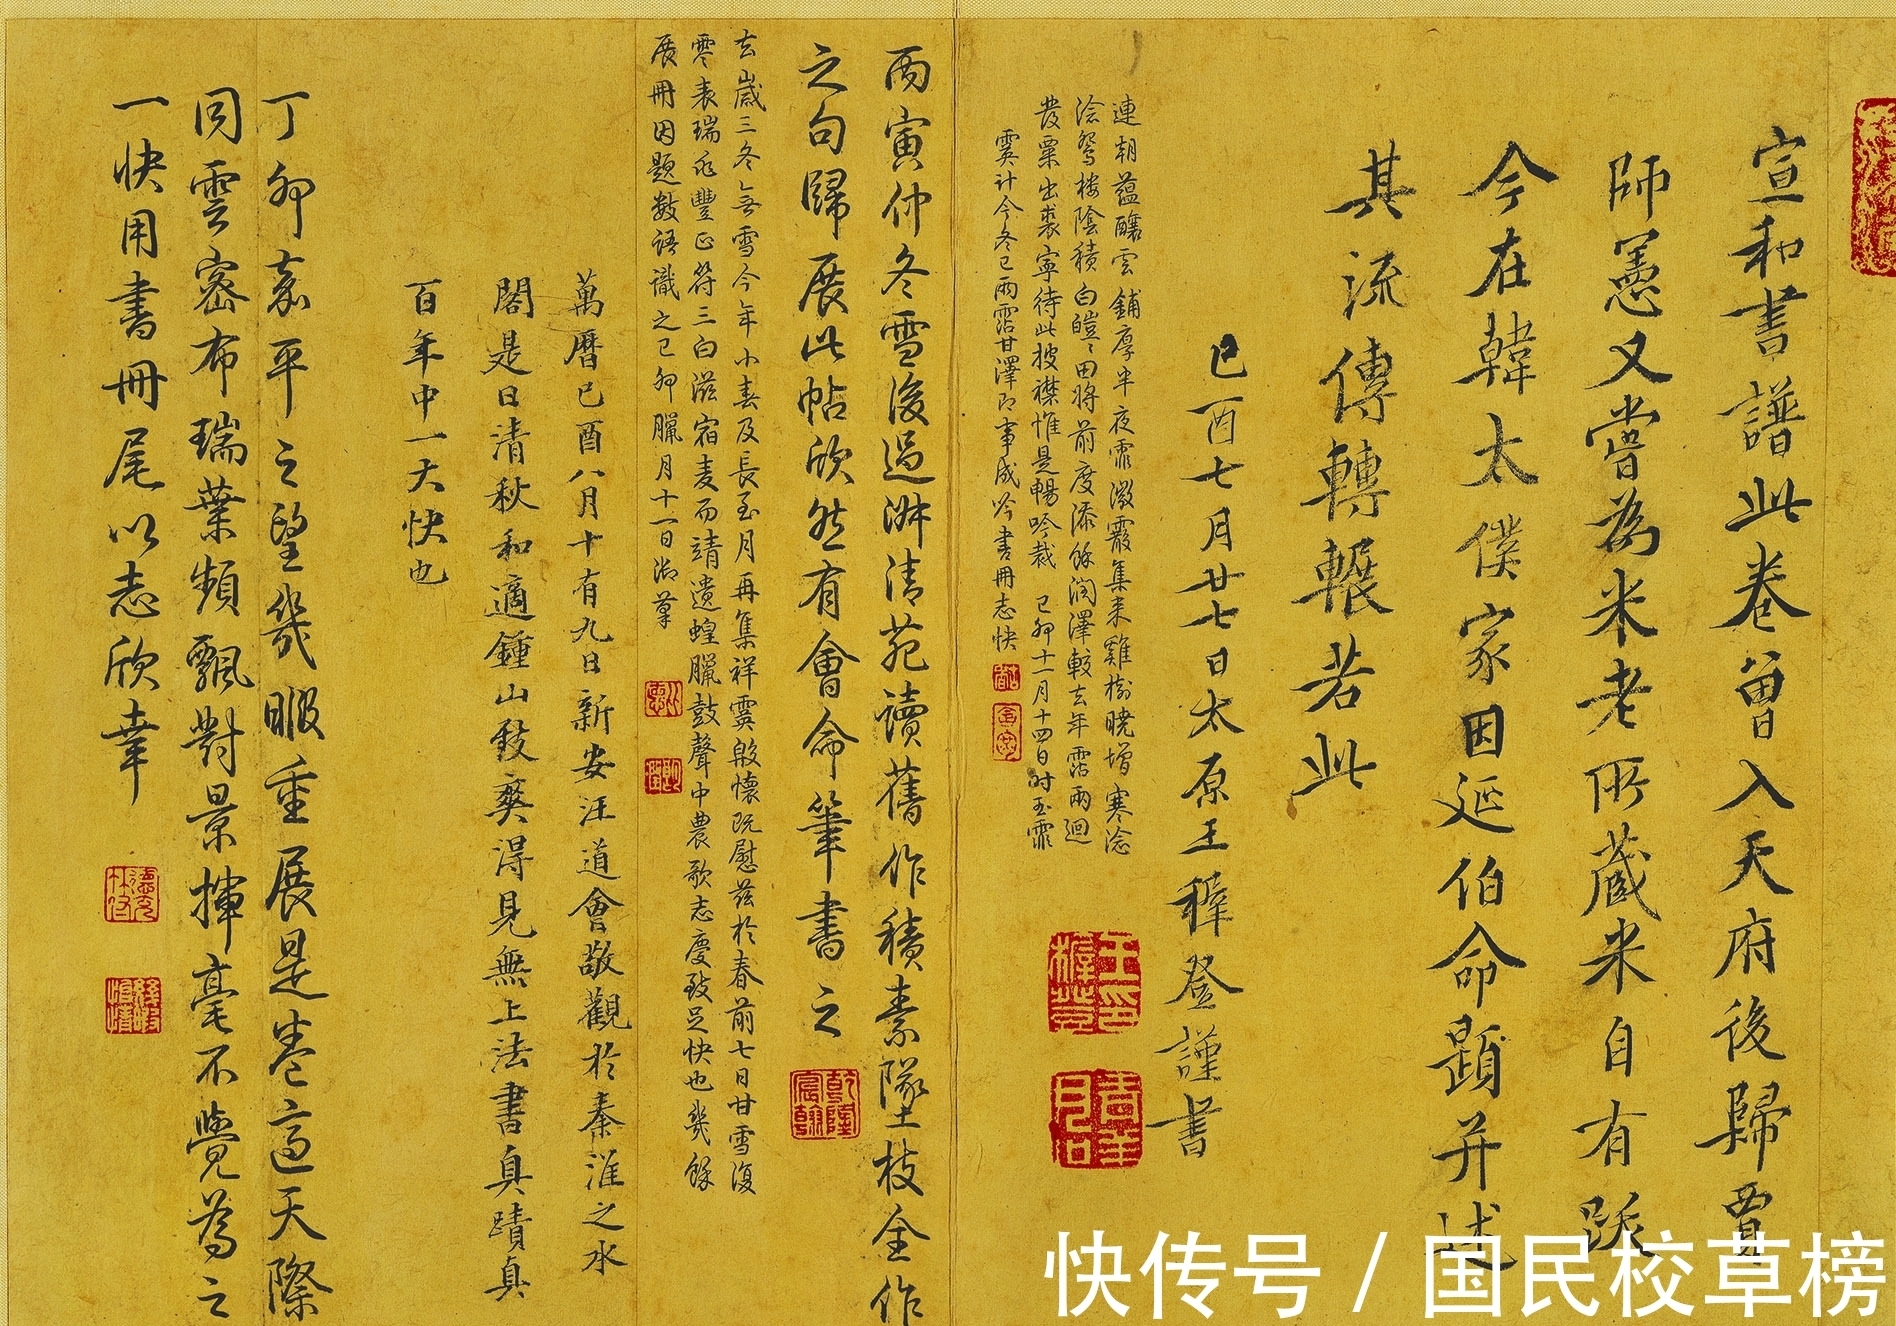 宣和書譜此卷曾入天府後歸賈
師憲又嘗為米老所藏米自有跋
今在韓太僕家因延伯命題并述
其流傳轉輾若此
已酉七月廿七日太原王穉登謹書
連朝蘊釀雲鋪厚半夜霏微霰集来雞樹曉增寒淰
淰鴛樓陰積白皚皚田將前度添餘潤澤較去年霑兩廻
發粟出裘寧待此披襟惟是暢吟裁 己卯十一月十四日時玉霏
霙計今冬已兩霑甘澤即事成吟書冊志快
丙寅仲冬雪後過淋清苑讀舊作積素墜枝全作
之句歸展此帖欣然有會命筆書之
去嵗三冬無雪今年小春及長至月再集祥霙殷懷既慰兹於春前七日甘雪復
零表瑞兆豐正符三白滋宿麦而靖遗蝗臘鼓聲中農歌志慶致足快也幾餘
展冊因題數語識之己卯臘月十一日御筆
萬曆己酉八月十有九日新安汪道會敬觀於秦淮之水
閣是日清秋和適鍾山致爽得見無上法書真蹟真
百年中一大快也
丁卯嘉平之望幾暇重展是卷適天際
同雲密布瑞葉頻飄對景揮毫不覺為之
一快用書冊尾以志欣幸
乾隆宸翰
快传号 / 国民校草榜